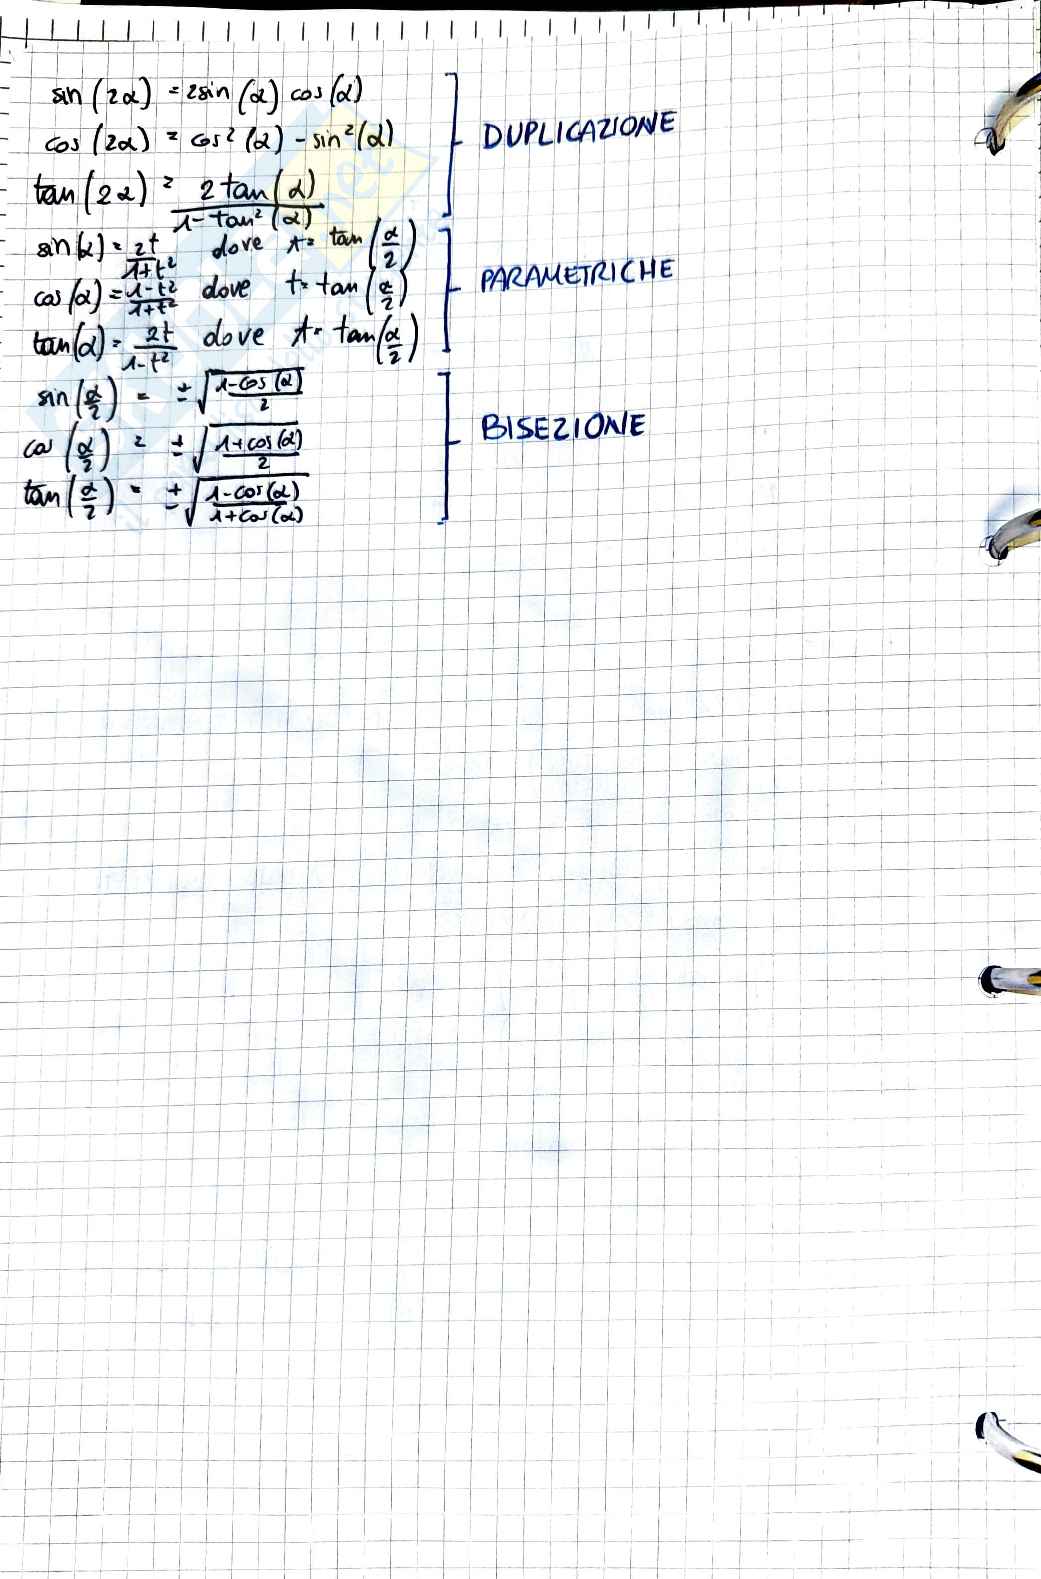 sin(2α) = 2sin(α) cos(α)
cos(2α) = cos²(α) - sin²(α)
tan(2α) = 2tan(α) / 1-tan²(α)
DUPLICAZIONE
sin(α) = 2t / 1+t² dove t = tan(α/2)
cos(α) = 1-t² / 1+t² dove t = tan(α/2)
tan(α) = 2t / 1-t² dove t = tan(α/2)
PARAMETRICHE
sin(α/2) = ±√(1-cos(α) / 2)
cos(α/2) = ±√(1+cos(α) / 2)
tan(α/2) = ±√(1-cos(α) / 1+cos(α))
BISEZIONE